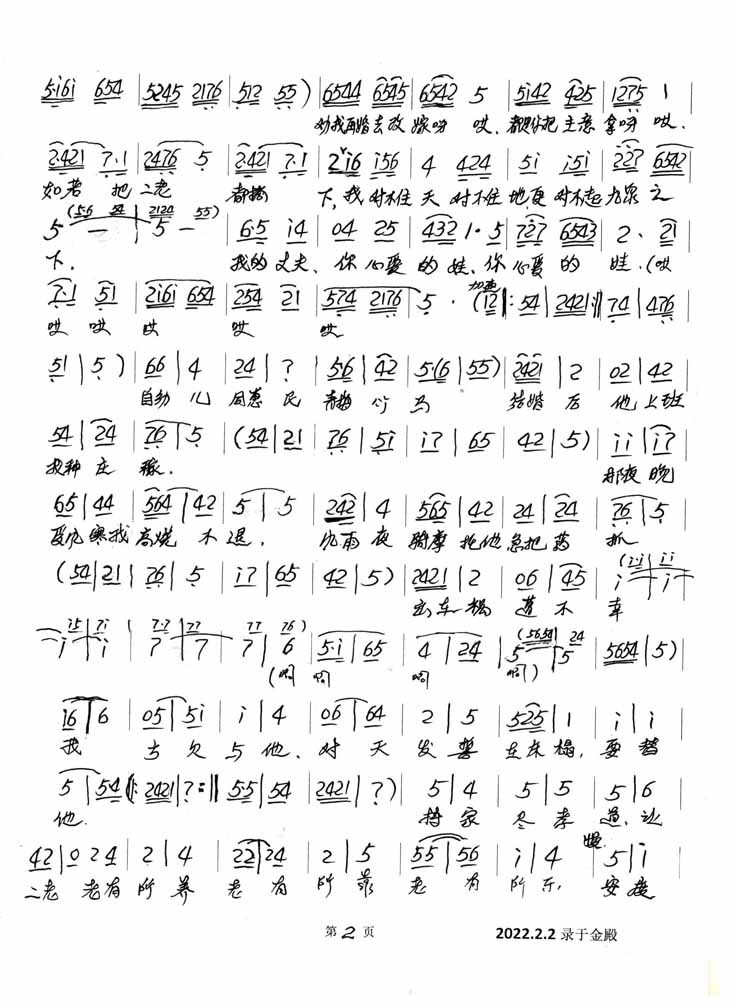 5·161 654 | 5245 2176 | 512 55 ) | 6544 6545 | 6542 5 | 5i42 425 | 1275 1 |
劝我再婚去改嫁呀 哎, 都是你把主意拿呀 哎.
2421 7·1 | 2476 5 | 2421 7·1 | 2 i6 i56 | 4 424 | 5i i5i | 227 6542 |
如若把二老 都撇 下, 我对不住天对不住地, 更对不起九泉之
(56 54 | 2124 55)
5 — | 5 — | 6·5 i4 | 04 25 | 432 1·5 | 727 6543 | 2、 21 |
下. 我的丈夫、你心爱的娃、你心爱的娃.(哎
7·1 51 | 2161 654 | 254 21 | 574 2176 | 5 · (12 ‖: 54 | 2421 :‖ 74 | 476 |
哎 哎 哎 哎 哎 加速
51 | 5 ) | 66 | 4 | 24 | 7 | 5·6 | 42 | 5·(6 | 55) | 2421 | 2 | 02 | 42 |
自幼儿同惠民青梅竹马 结婚后他上班
54 | 24 | 76 | 5 | (54 | 21 | 76 | 5i | i7 | 65 | 42 | 5) | ii | i7 |
我种庄稼. 那夜晚
65 | 44 | 564 | 42 | 5 | 5 | 242 | 4 | 565 | 42 | 24 | 24 | 76 | 5 |
受风寒我高烧不退, 风雨夜骑摩托他急把药抓
(54 | 21 | 76 | 5 | i7 | 65 | 42 | 5) | 2421 | 2 | 06 | 45 | i | i |
出车祸遭不幸
i | i | 7 | 7 | 7 | 6 | 5·i | 65 | 4 | 24 | 5 | 5 | 5654 | 5) |
(啊 啊 啊 啊)
i6 | 6 | 05 | 5i | i | 4 | 06 | 64 | 2 | 5 | 525 | 1 | i | i |
我 亏欠与他、对天发誓在床榻, 要替
5 | 54 ‖: 2421 | 7 :‖ 55 | 54 | 2421 | 7) | 5 | 4 | 5 | 5 | 5 | 6 |
他. 持家尽孝道, 让
42 | 0 24 | 2 | 4 | 22 | 24 | 2 | 5 | 55 | 56 | i | 4 | 5 | i |
二老老有所养老有所靠老有所乐, 安度
第 2 页 2022.2.2 录于金殿